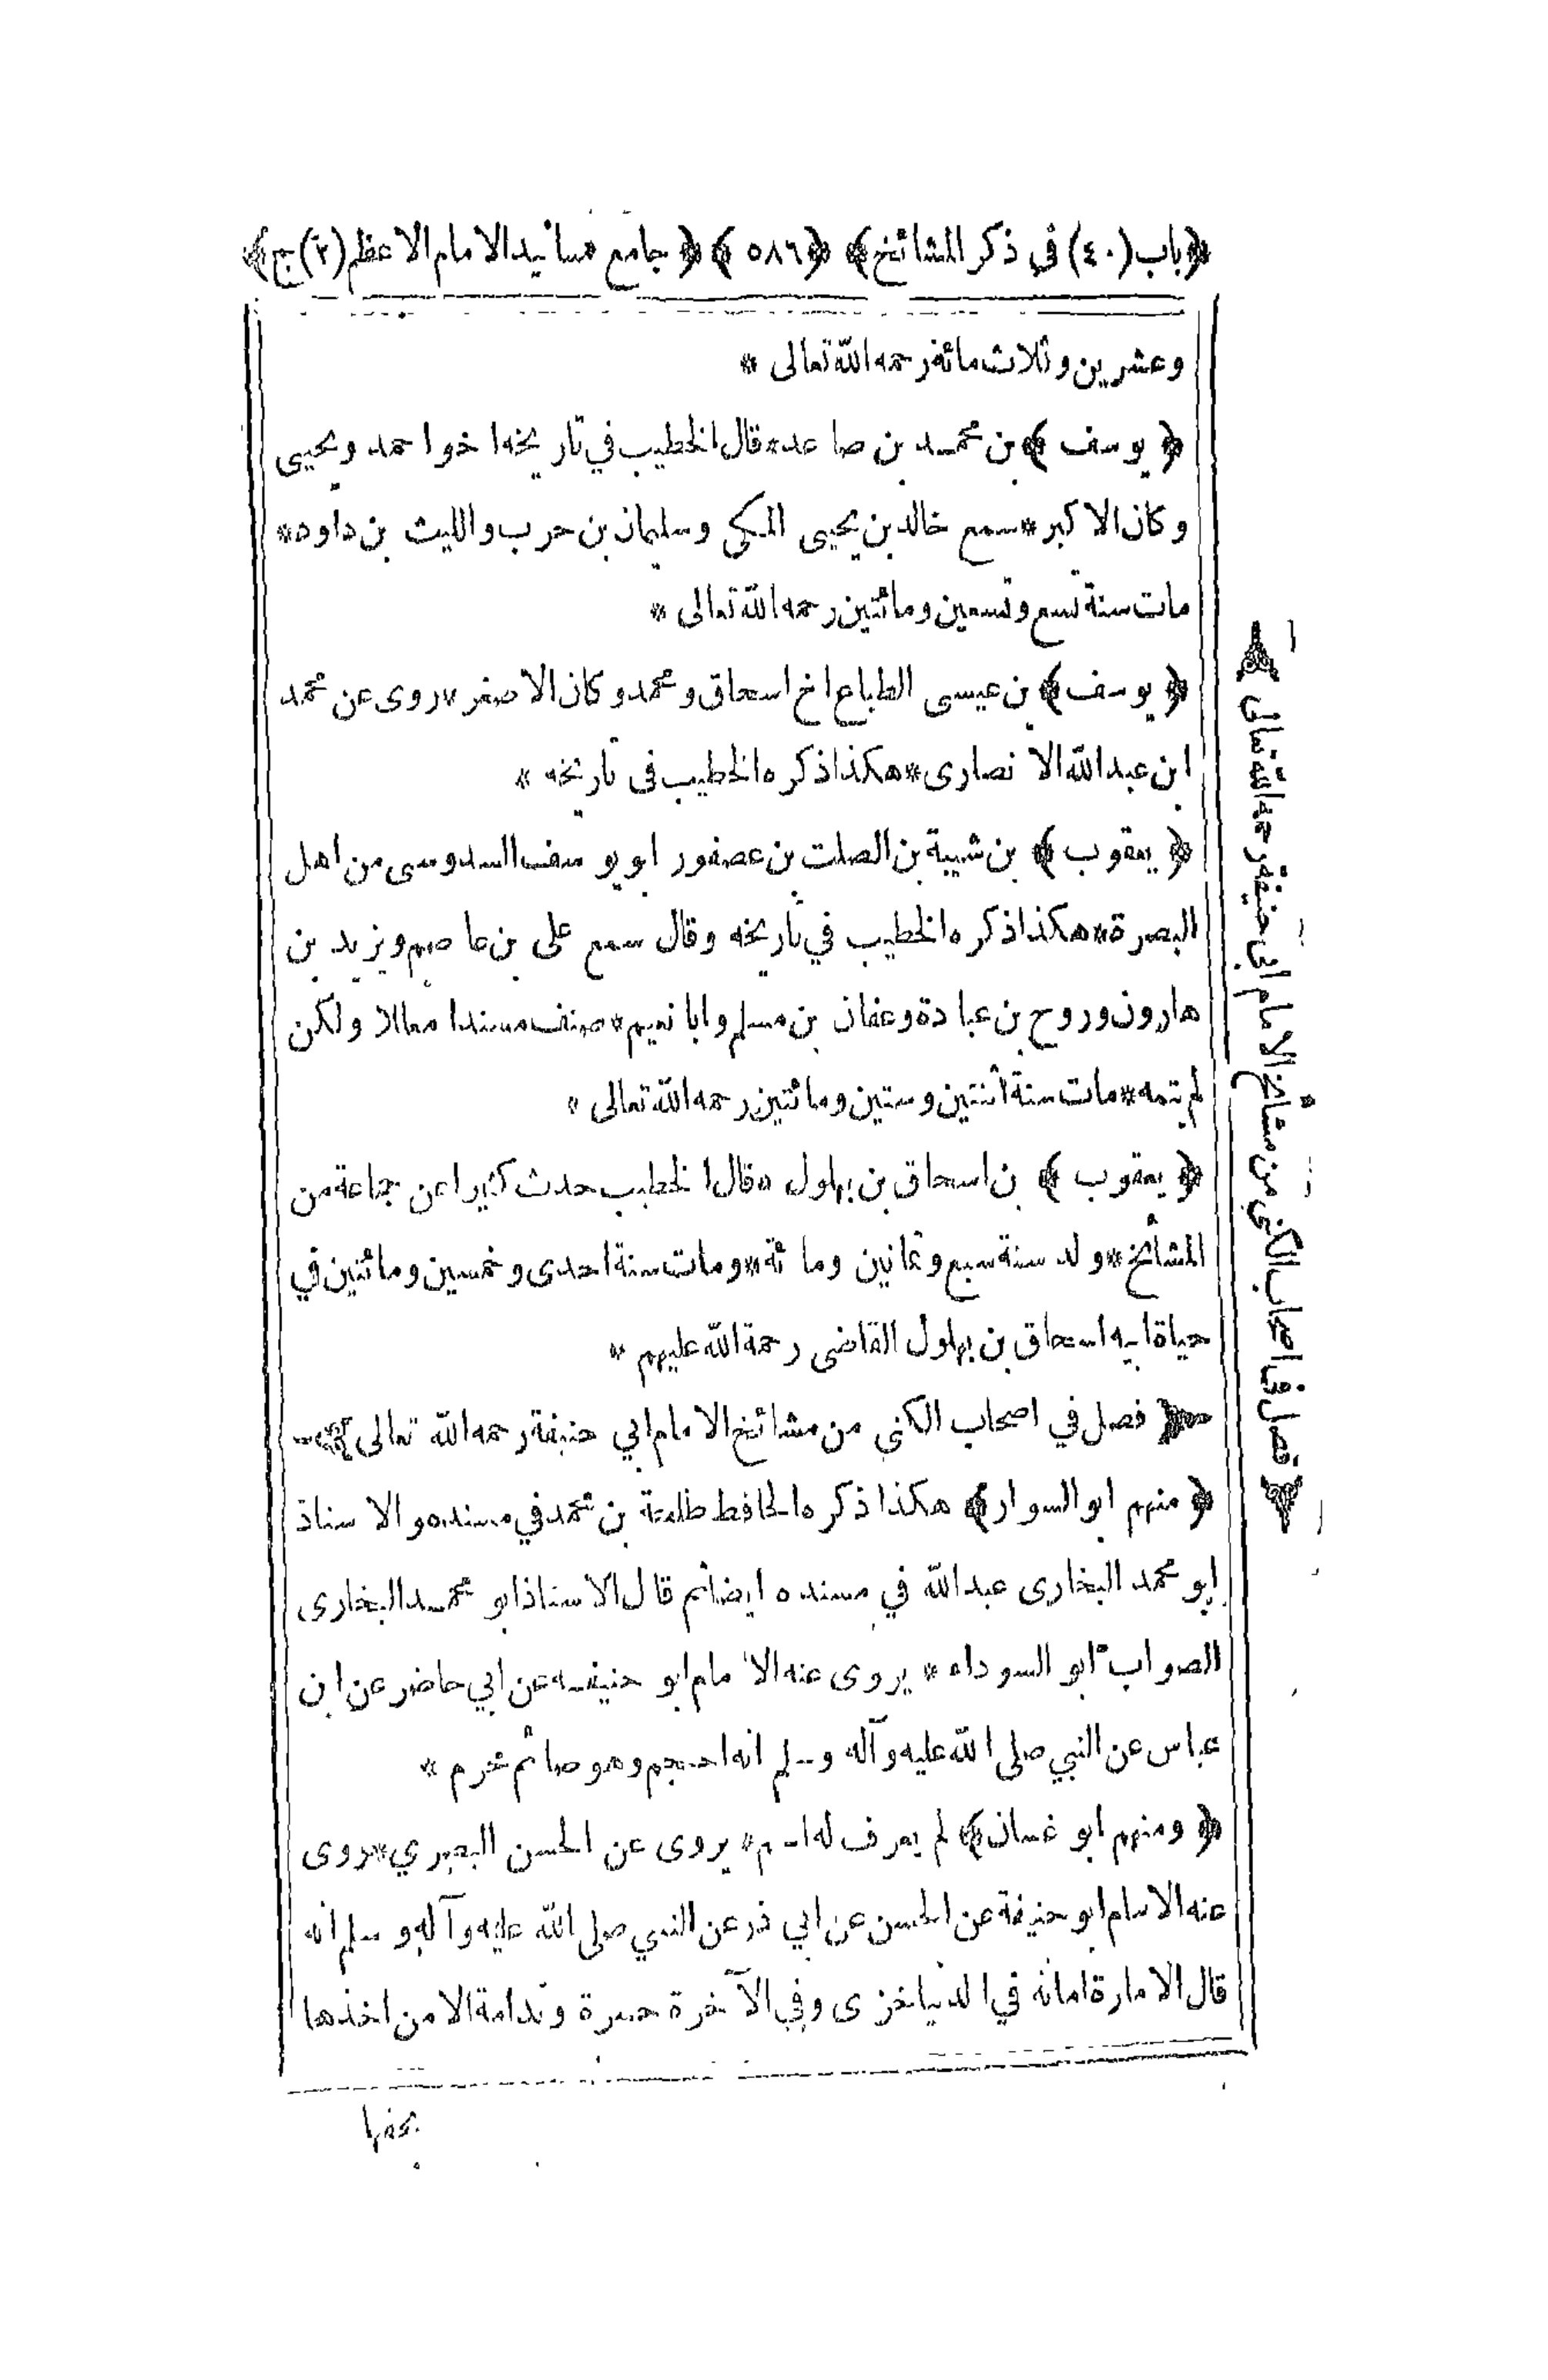 ﴿باب (٤٠) في ذكر المشائخ﴾ ﴿٥٨٦﴾ ﴿جامع مسانيد الامام الاعظم (٢) ج﴾
وعشرين وثلاث مائة رحمه الله تعالى *
﴿ يوسف ﴾ بن محمد بن صاعد * قال الخطيب في تاريخه اخو احمد ويحيى
وكان الاكبر * سمع خالد بن يحيى المكي وسليمان بن حرب والليث بن داود *
مات سنة تسع وتسعين ومائتين رحمه الله تعالى *
﴿ يوسف ﴾ بن عيسى الطباع اخ اسحاق ومحمد وكان الاصغر * روى عن محمد
ابن عبد الله الانصارى * هكذا ذكره الخطيب فى تاريخه *
﴿ يعقوب ﴾ بن شيبة بن الصلت بن عصفور ابو يوسف السدوسى من اهل
البصرة * هكذا ذكره الخطيب في تاريخه وقال سمع على بن عاصم ويزيد بن
هارون وروح بن عبادة وعفان بن مسلم وابا نعيم * صنف مسندا معللا ولكن
لم يتمه * مات سنة أثنتين وستين ومائتين رحمه الله تعالى *
﴿ يعقوب ﴾ بن اسحاق بن بهلول * قال الخطيب حدث كثيرا عن جماعة من
المشائخ * ولد سنة سبع وثمانين ومائة * ومات سنة احدى وخمسين ومائتين في
حياة ابيه اسحاق بن بهلول القاضى رحمة الله عليهم *
﴿ فصل في اصحاب الكنى من مشائخ الامام ابي حنيفة رحمه الله تعالى ﴾
﴿ منهم ابو السوار ﴾ هكذا ذكره الحافظ طلحة بن محمد في مسنده والاستاذ
ابو محمد البخارى عبد الله في مسنده ايضا ثم قال الاستاذ ابو محمد البخارى
الصواب ابو السوداء * يروى عنه الامام ابو حنيفه عن ابي حاضر عن ابن
عباس عن النبي صلى الله عليه وآله وسلم انه احتجم وهو صائم محرم *
﴿ ومنهم ابو غسان ﴾ لم يعرف له اسم * يروى عن الحسن البصري * روى
عنه الامام ابو حنيفة عن الحسن عن ابي ذر عن النبي صلى الله عليه وآله وسلم انه
قال الامارة امانه في الدنيا خزى وفي الآخرة حسرة وندامة الا من اخذها
بحقها
﴿ فصل فى اصحاب الكنى من مشائخ الامام ابى حنيفة رحمه الله تعالى ﴾